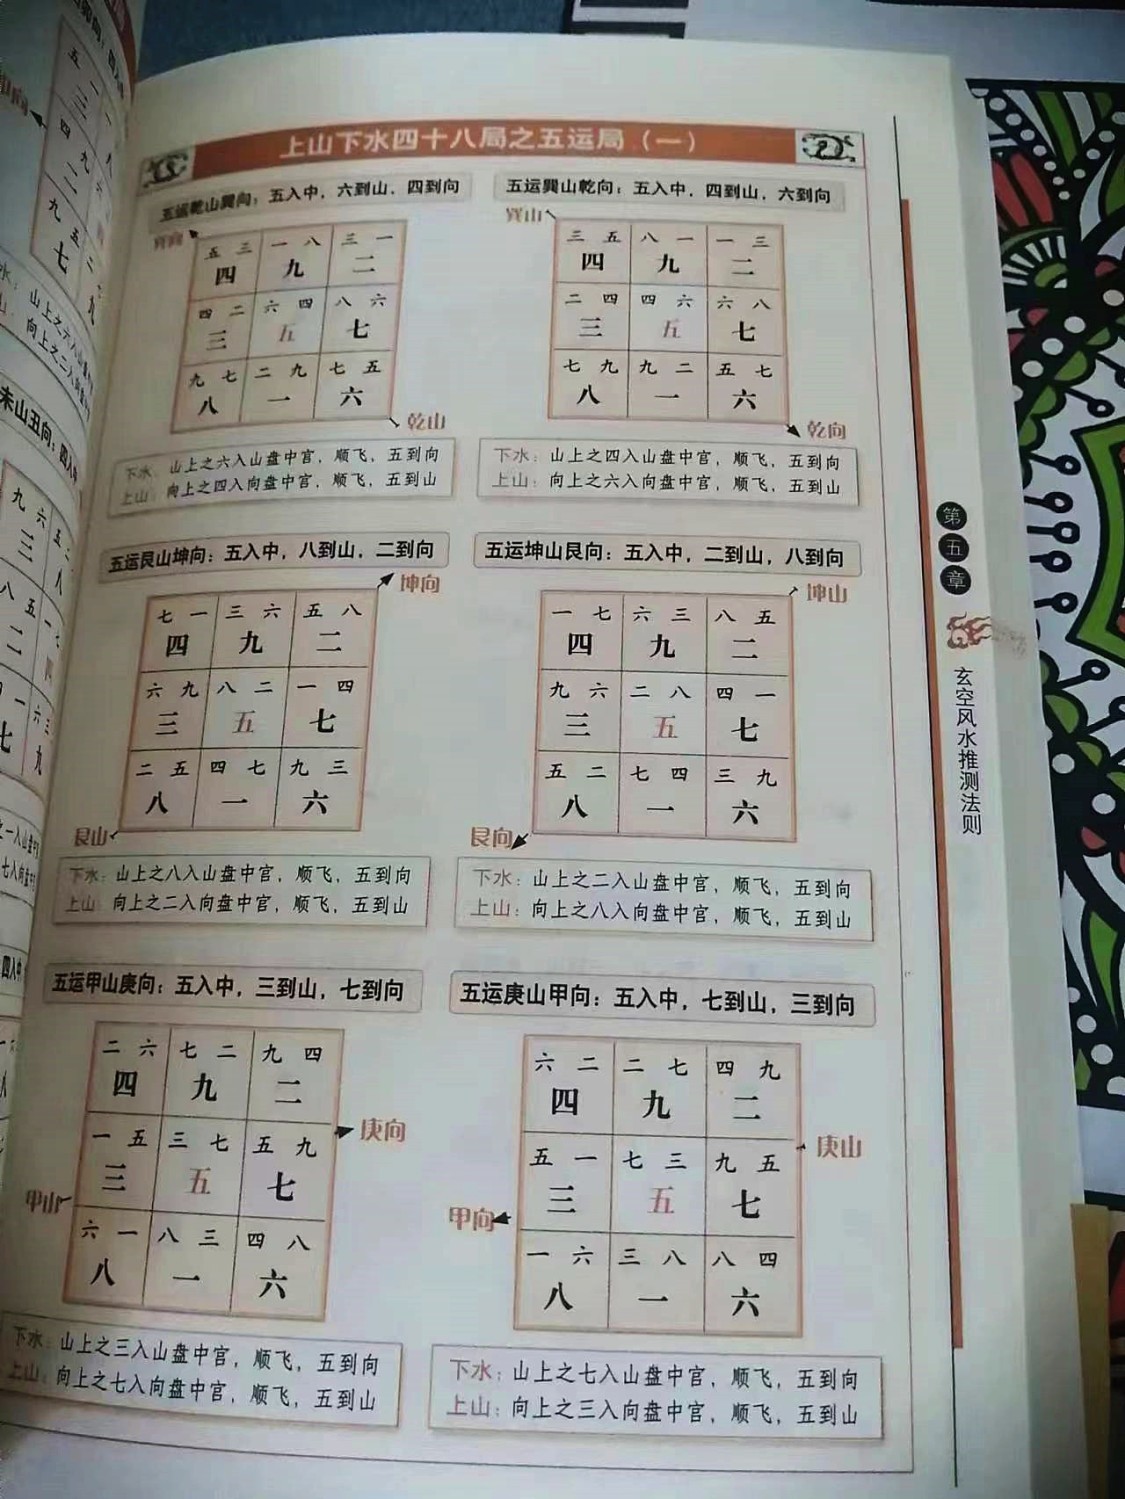 上山下水四十八局之五运局（一）
五运乾山巽向：五入中，六到山，四到向
巽向
五 三 一 八 三 一
四 九 二
四 二 六 四 八 六
三 五 七
九 七 二 九 七 五
八 一 六
乾山
下水：山上之六入山盘中宫，顺飞，五到向
上山：向上之四入向盘中宫，顺飞，五到山
五运巽山乾向：五入中，四到山，六到向
巽山
三 五 八 一 一 三
四 九 二
二 四 四 六 六 八
三 五 七
七 九 九 二 五 七
八 一 六
乾向
下水：山上之四入山盘中宫，顺飞，五到向
上山：向上之六入向盘中宫，顺飞，五到山
五运艮山坤向：五入中，八到山，二到向
坤向
七 一 三 六 五 八
四 九 二
六 九 八 二 一 四
三 五 七
二 五 四 七 九 三
八 一 六
艮山
下水：山上之八入山盘中宫，顺飞，五到向
上山：向上之二入向盘中宫，顺飞，五到山
五运坤山艮向：五入中，二到山，八到向
坤山
一 七 六 三 八 五
四 九 二
九 六 二 八 四 一
三 五 七
五 二 七 四 三 九
八 一 六
艮向
下水：山上之二入山盘中宫，顺飞，五到向
上山：向上之八入向盘中宫，顺飞，五到山
五运甲山庚向：五入中，三到山，七到向
二 六 七 二 九 四
四 九 二
庚向
一 五 三 七 五 九
三 五 七
甲山
六 一 八 三 四 八
八 一 六
下水：山上之三入山盘中宫，顺飞，五到向
上山：向上之七入向盘中宫，顺飞，五到山
五运庚山甲向：五入中，七到山，三到向
六 二 二 七 四 九
四 九 二
庚山
五 一 七 三 九 五
三 五 七
甲向
一 六 三 八 八 四
八 一 六
下水：山上之七入山盘中宫，顺飞，五到向
上山：向上之三入向盘中宫，顺飞，五到山
第五章
玄空风水推测法则
未山丑向：四入中